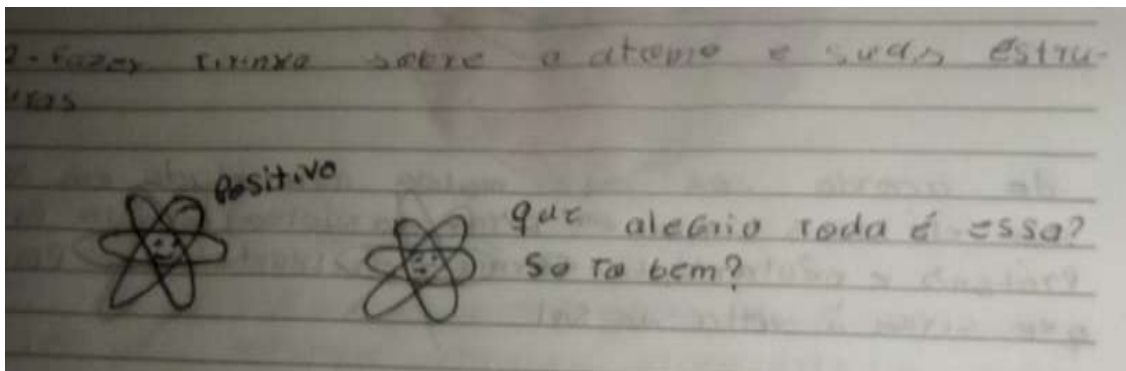 2- Fazer tirinha sobre o atomo e suas estru-
uras
Positivo
que alegria toda é essa?
So ta bem?